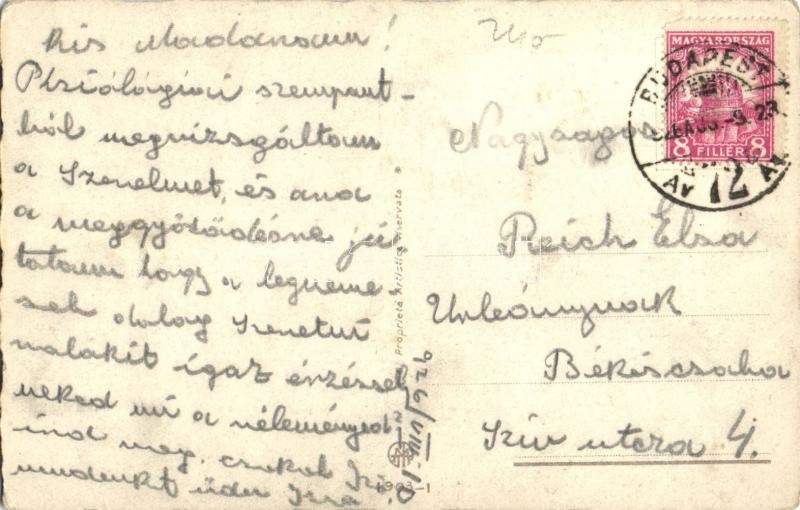 Kis Madaram!
Phsiológiai szempont-
ból megvizsgáltam
a Szerelmet, és arra
a meggyőződésre ju-
tottam hogy a legneme-
sebb dolog szeretni
valakit igaz érzéssel
neked mi a véleményed
ird meg. csókol Izi
mindenkit üdv. Izra
Proprietà Artistica riservata
1903-1
926 VIII/10
Nagyságos
Reich Elsa
Urleánynak
Békéscsaba
Szív utcza 4.
MAGYARORSZÁG
8 FILLÉR 8
BUDAPEST
72